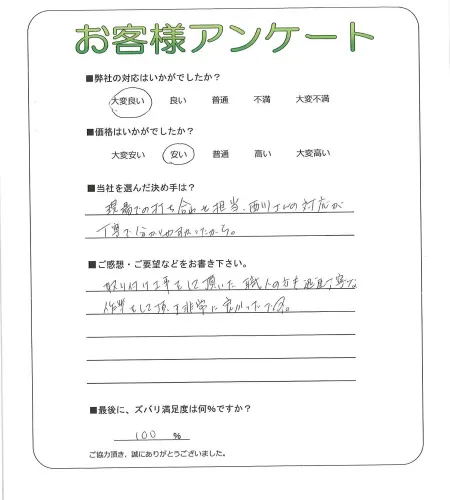 お客様アンケート
■弊社の対応はいかがでしたか？
大変良い 良い 普通 不満 大変不満
■価格はいかがでしたか？
大変安い 安い 普通 高い 大変高い
■当社を選んだ決め手は？
現場での打ち合わせ担当、西川さんの対応が
丁寧で分かりやすかったから。
■ご感想・ご要望などをお書き下さい。
取り付け工事をして頂いた職人の方も丁寧な
作業をして頂き非常に良かったです。
■最後に、ズバリ満足度は何％ですか？
100 ％
ご協力頂き、誠にありがとうございました。